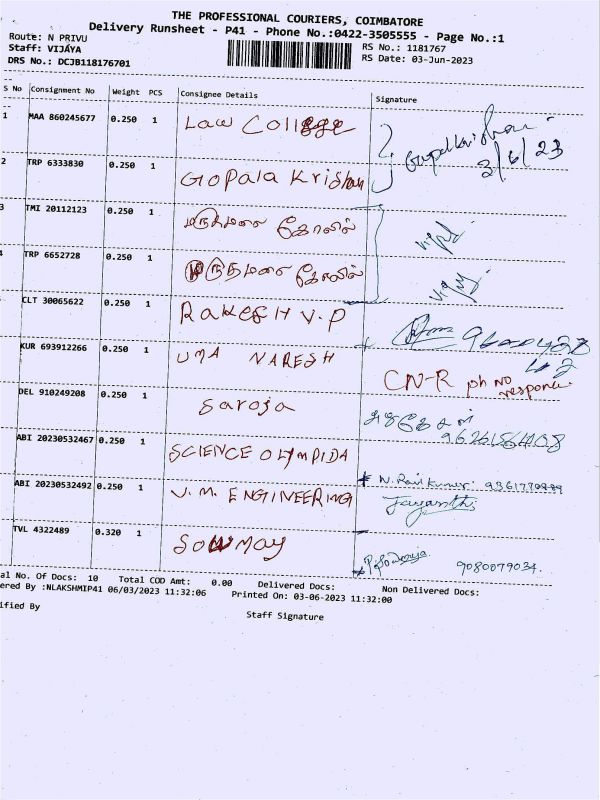 THE PROFESSIONAL COURIERS, COIMBATORE
Delivery Runsheet - P41 - Phone No.:0422-3505555 - Page No.:1
Route: N PRIVU
Staff: VIJAYA
DRS No.: DCJB118176701
RS No.: 1181767
RS Date: 03-Jun-2023
S No Consignment No Weight PCS Consignee Details Signature
1 MAA 860245677 0.250 1 Law College Gopalkrishnan
3/6/23
2 TRP 6333830 0.250 1 Gopala Krishan
3 TMI 20112123 0.250 1 மருதமலை கோவில்
TRP 6652728 0.250 1 மருதமலை கோவில்
CLT 30065622 0.250 1 RAKESH V.P
KUR 693912266 0.250 1 UMA NARESH CN-R ph NO
response
DEL 910249208 0.250 1 Saroja
ABI 20230532467 0.250 1 SCIENCE OLYMPIDA
ABI 20230532492 0.250 1 V.M. ENGINEERING N. Ravikumar:
Jayanthi
TVL 4322489 0.320 1 SOWMAY 9080079034
al No. Of Docs: 10 Total COD Amt: 0.00 Delivered Docs: Non Delivered Docs:
ered By :NLAKSHMIP41 06/03/2023 11:32:06 Printed On: 03-06-2023 11:32:00
ified By Staff Signature